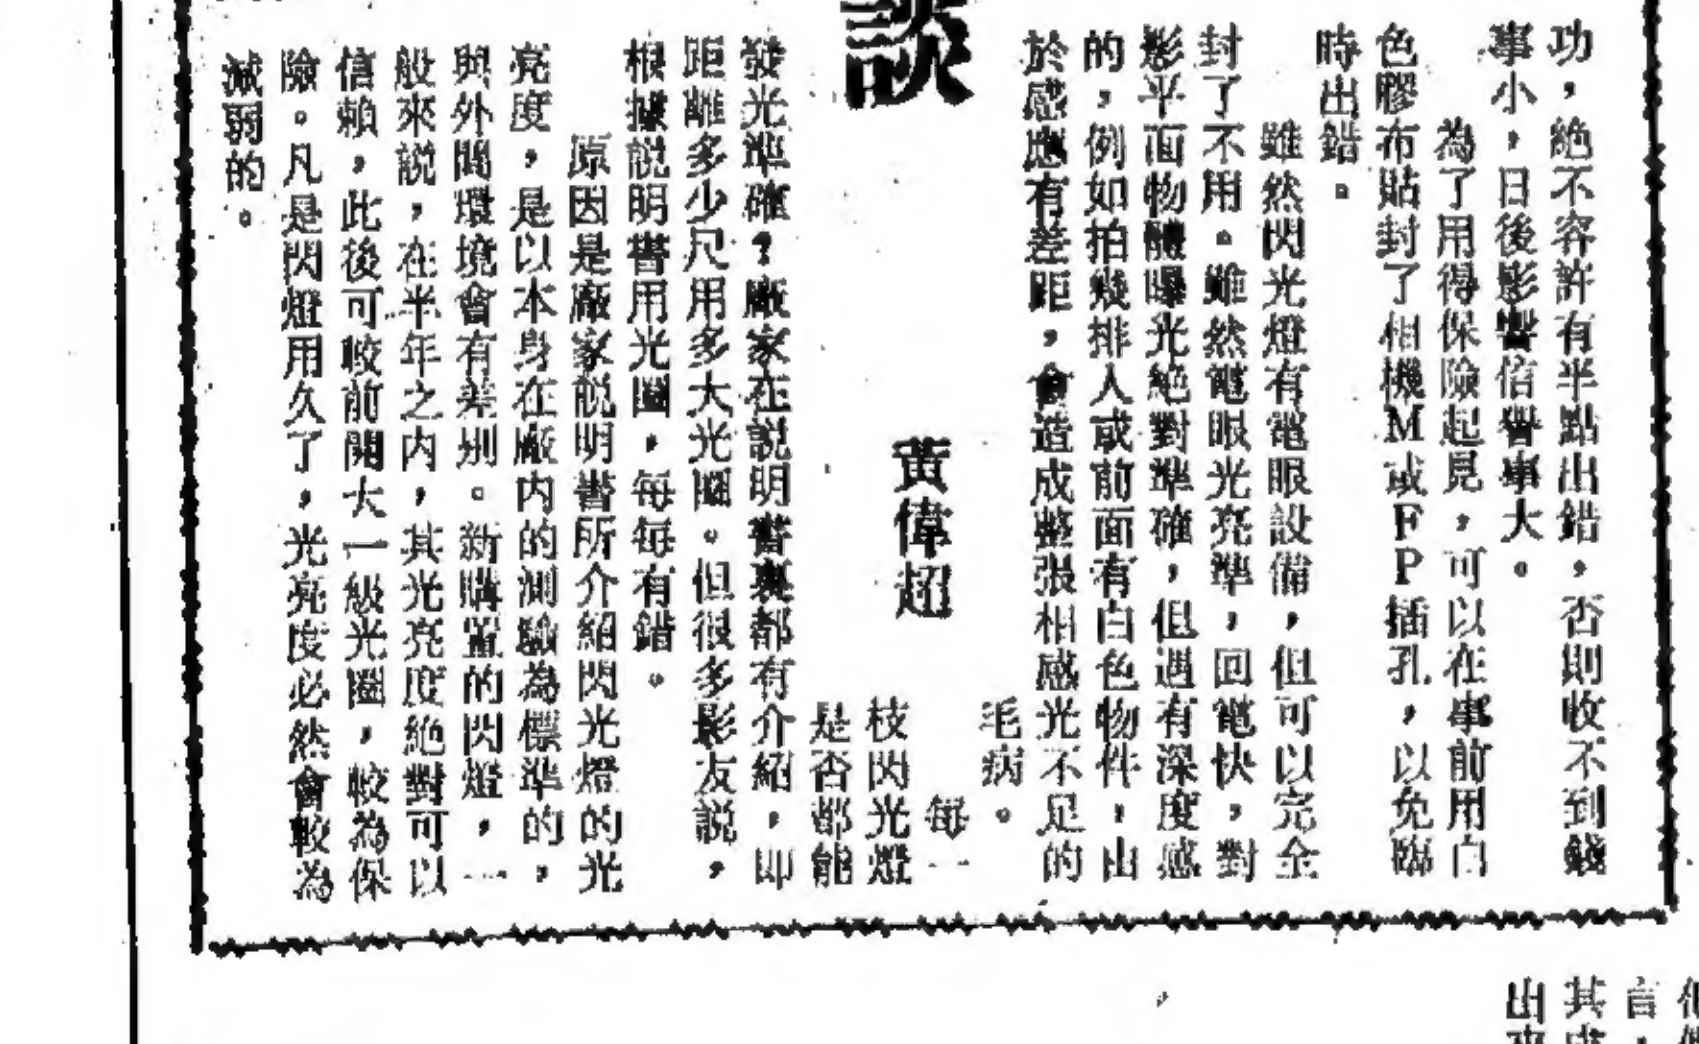 功，絶不容許有半點出錯，否則收不到錢
事小，日後影響信譽事大。
為了用得保險起見，可以在事前用白
色膠布貼封了相機M或FP插孔，以免臨
時出錯。
雖然閃光燈有電眼設備，但可以完全
封了不用。雖然電眼光亮準，回電快，對
影平面物體曝光絶對準確，但遇有深度感
的，例如拍幾排人或前面有白色物件，由
於感應有差距，會造成整張相感光不足的
毛病。
談
黃偉超
每一
枝閃光燈
是否都能
發光準確？廠家在説明書裏都有介紹，即
距離多少尺用多大光圈。但很多影友説，
根據説明書用光圈，每每有錯。
原因是廠家説明書所介紹閃光燈的光
亮度，是以本身在廠内的測驗為標準的，
與外間環境會有差別。新購置的閃燈，一
般來説，在半年之内，其光亮度絶對可以
信賴，此後可較前開大一級光圈，較為保
險。凡是閃燈用久了，光亮度必然會較為
減弱的。
言，
其
出來